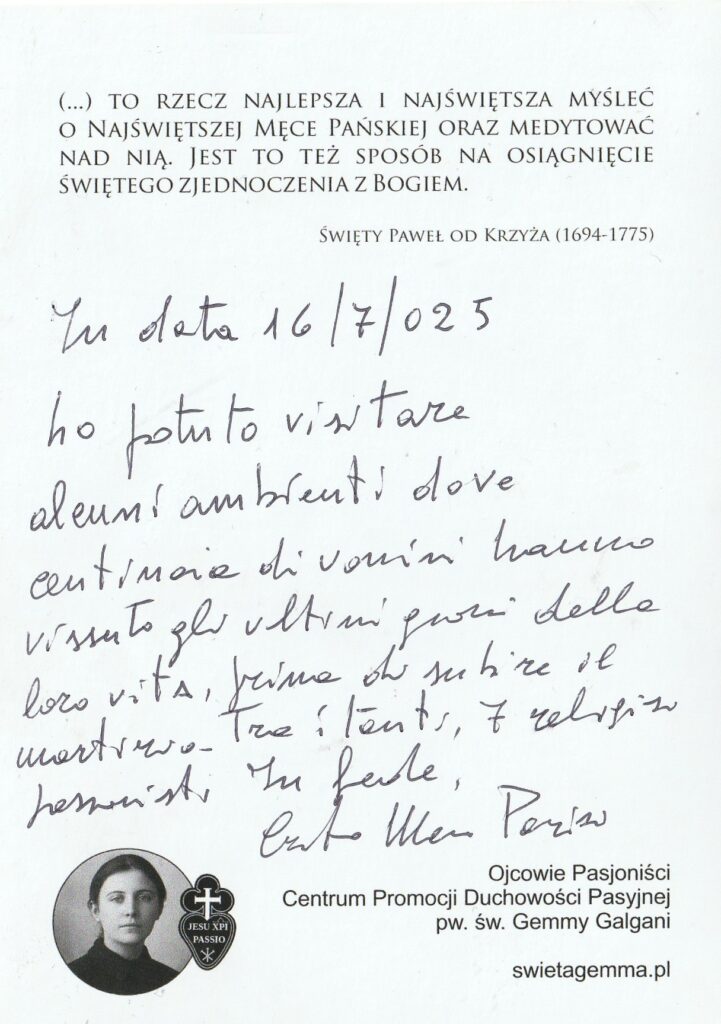 (...) TO RZECZ NAJLEPSZA I NAJŚWIĘTSZA MYŚLEĆ
O NAJŚWIĘTSZEJ MĘCE PAŃSKIEJ ORAZ MEDYTOWAĆ
NAD NIĄ. JEST TO TEŻ SPOSÓB NA OSIĄGNIĘCIE
ŚWIĘTEGO ZJEDNOCZENIA Z BOGIEM.
ŚWIĘTY PAWEŁ OD KRZYŻA (1694-1775)
In data 16/7/025
ho potuto visitare
alcuni ambienti dove
centinaia di uomini hanno
vissuto gli ultimi giorni della
loro vita, prima di subire il
martirio. Tra i tanti, 7 religiosi
passionisti In fede,
JESU XPI
PASSIO
Ojcowie Pasjoniści
Centrum Promocji Duchowości Pasyjnej
pw. św. Gemmy Galgani
swietagemma.pl